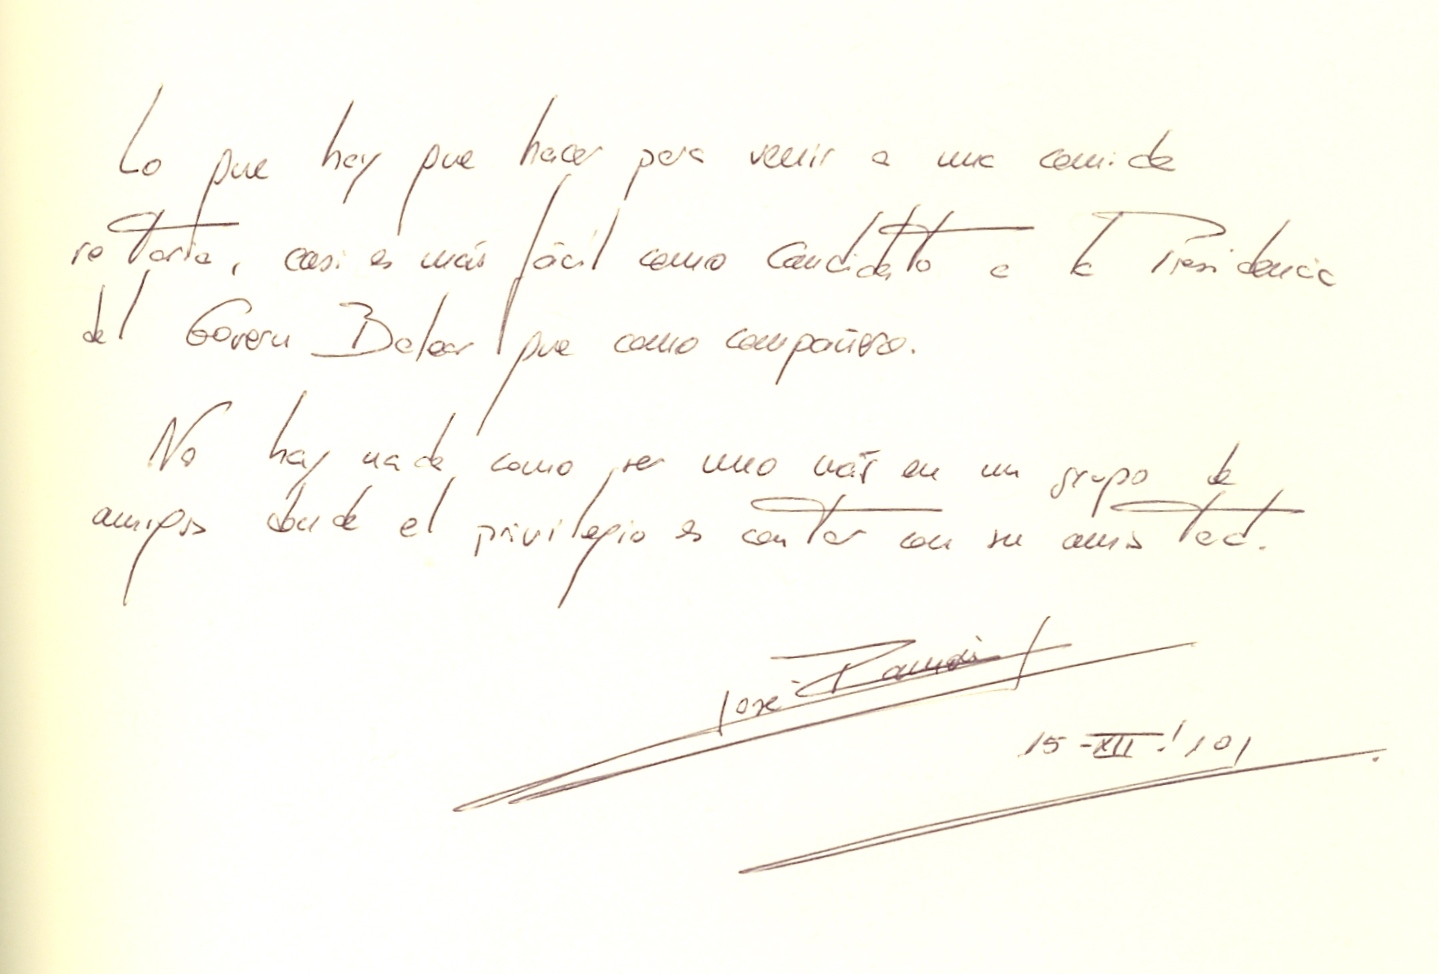 Lo que hay que hacer para venir a una comida
rotaria, casi es más fácil como Candidato a la Presidencia
del Govern Balear que como compañero.
No hay nada como ser uno más en un grupo de
amigos donde el privilegio es contar con su amistad.
José Ramón
15-XII-